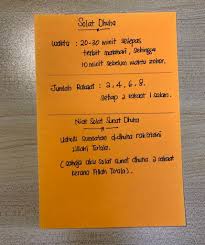 Solat Dhuha
Waktu : 20-30 minit selepas
terbit matahari, sehingga
10 minit sebelum waktu zohor.
Jumlah Rakaat : 2, 4, 6, 8.
setiap 2 rakaat 1 salam.
Niat Solat Sunat Dhuha
Usholli Sunnatan d-dhuha rak'ataini
lillahi Ta'ala.
( Sahaja aku solat sunat dhuha 2 rakaat
kerana Allah Ta'ala ).